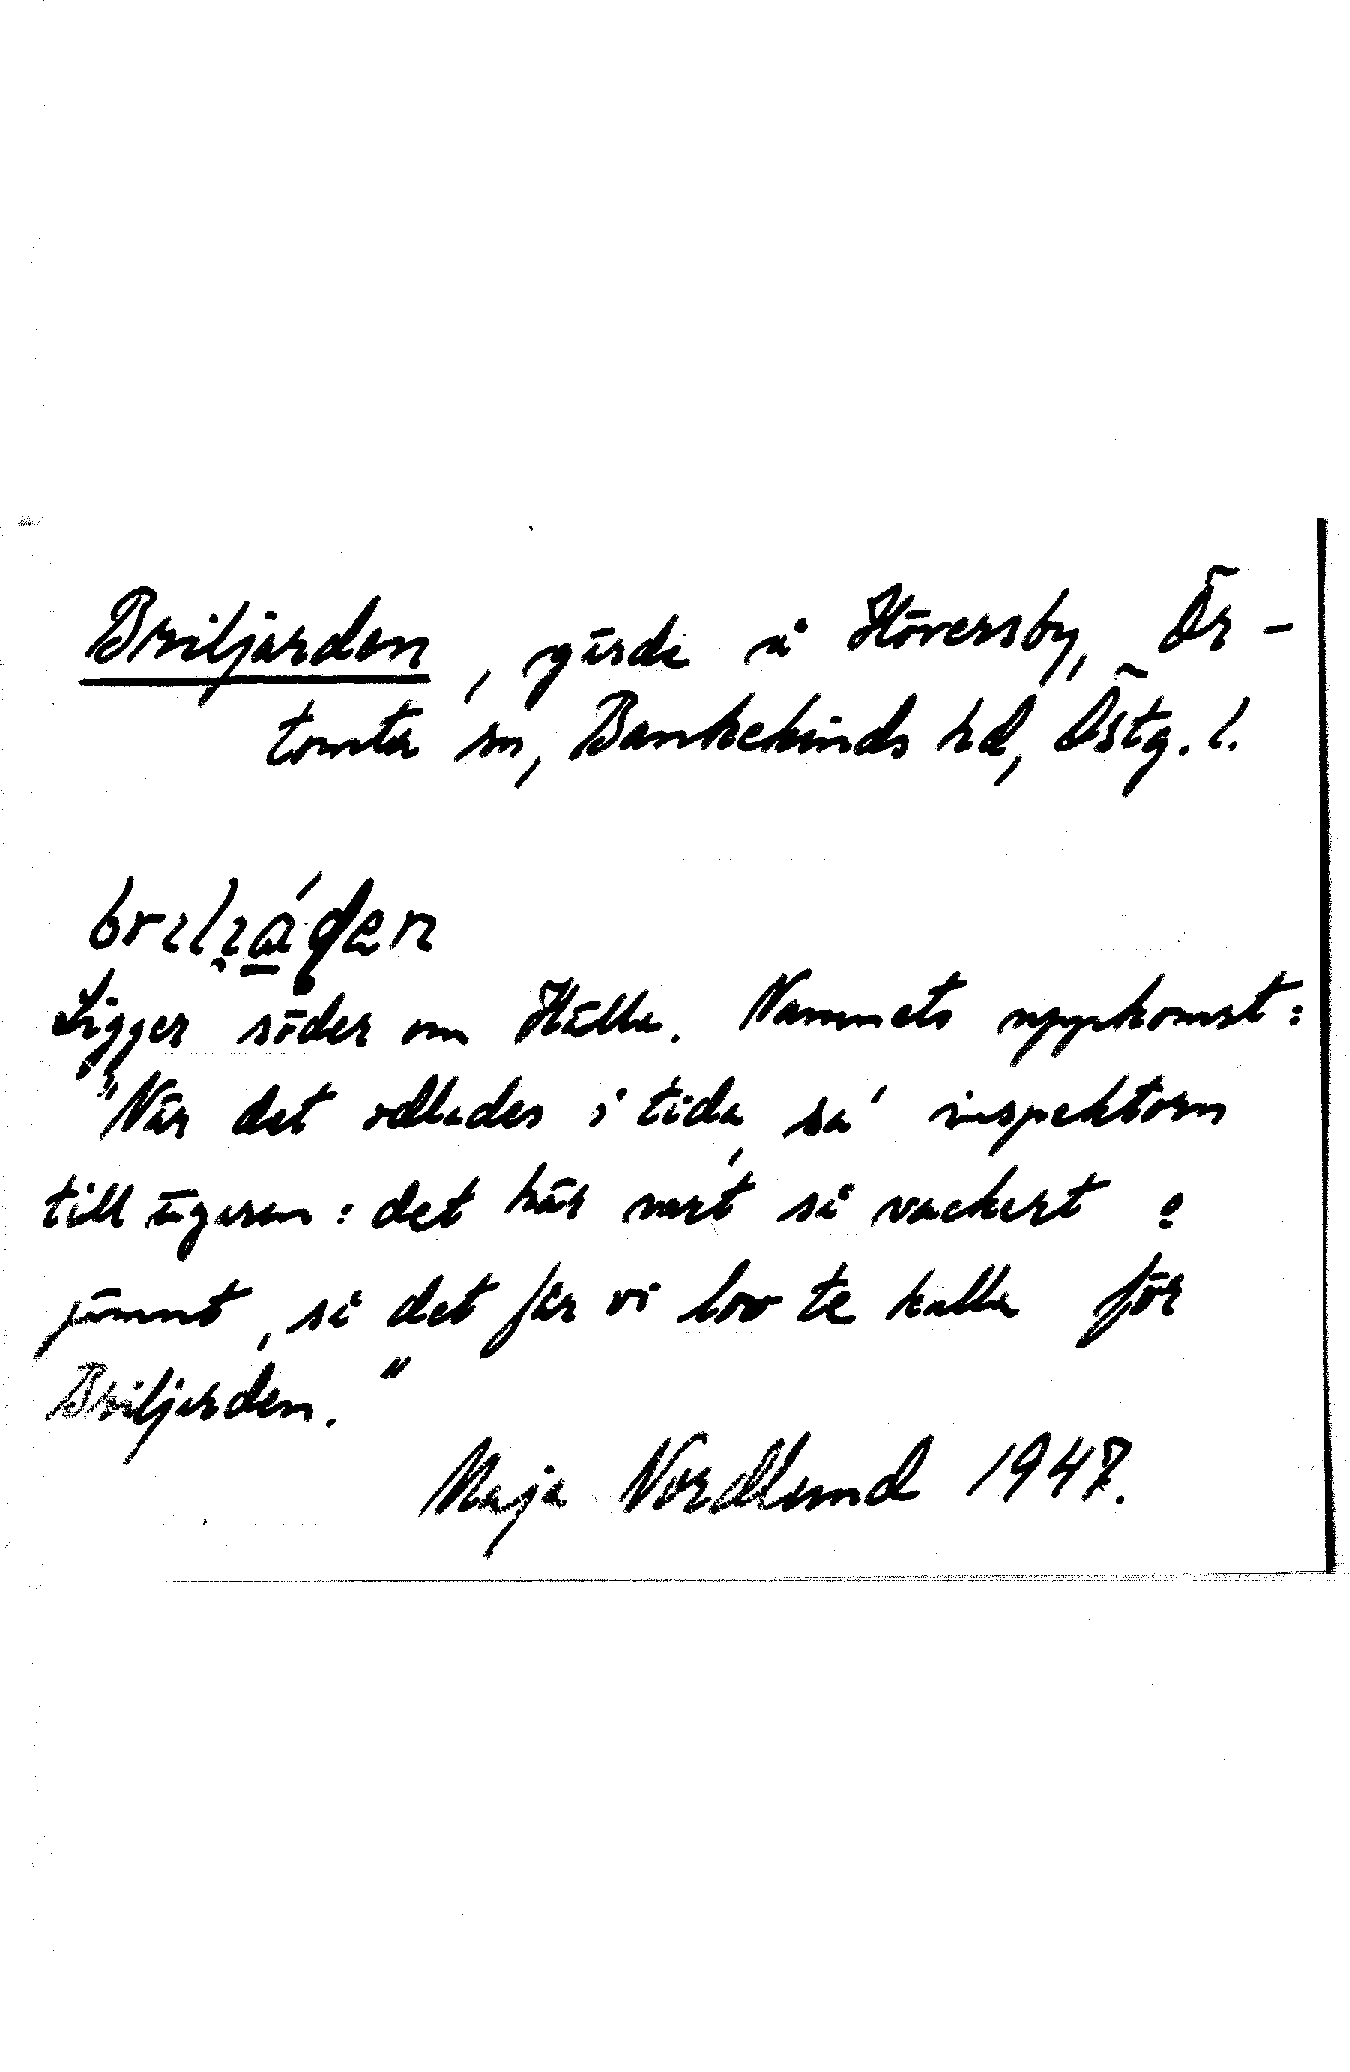 Briljarden, gärde å Höversby, Ör-
tomta sn, Bankekinds hd, Östg. l.
Ligger söder om Hälla. Namnets uppkomst:
"När det odlades i tida, sa' inspektorn
till ägaren: det här vart så vackert o
jämnt, så det får vi lov te kalla för
Briljarden."
Maja Nordlund 1947.